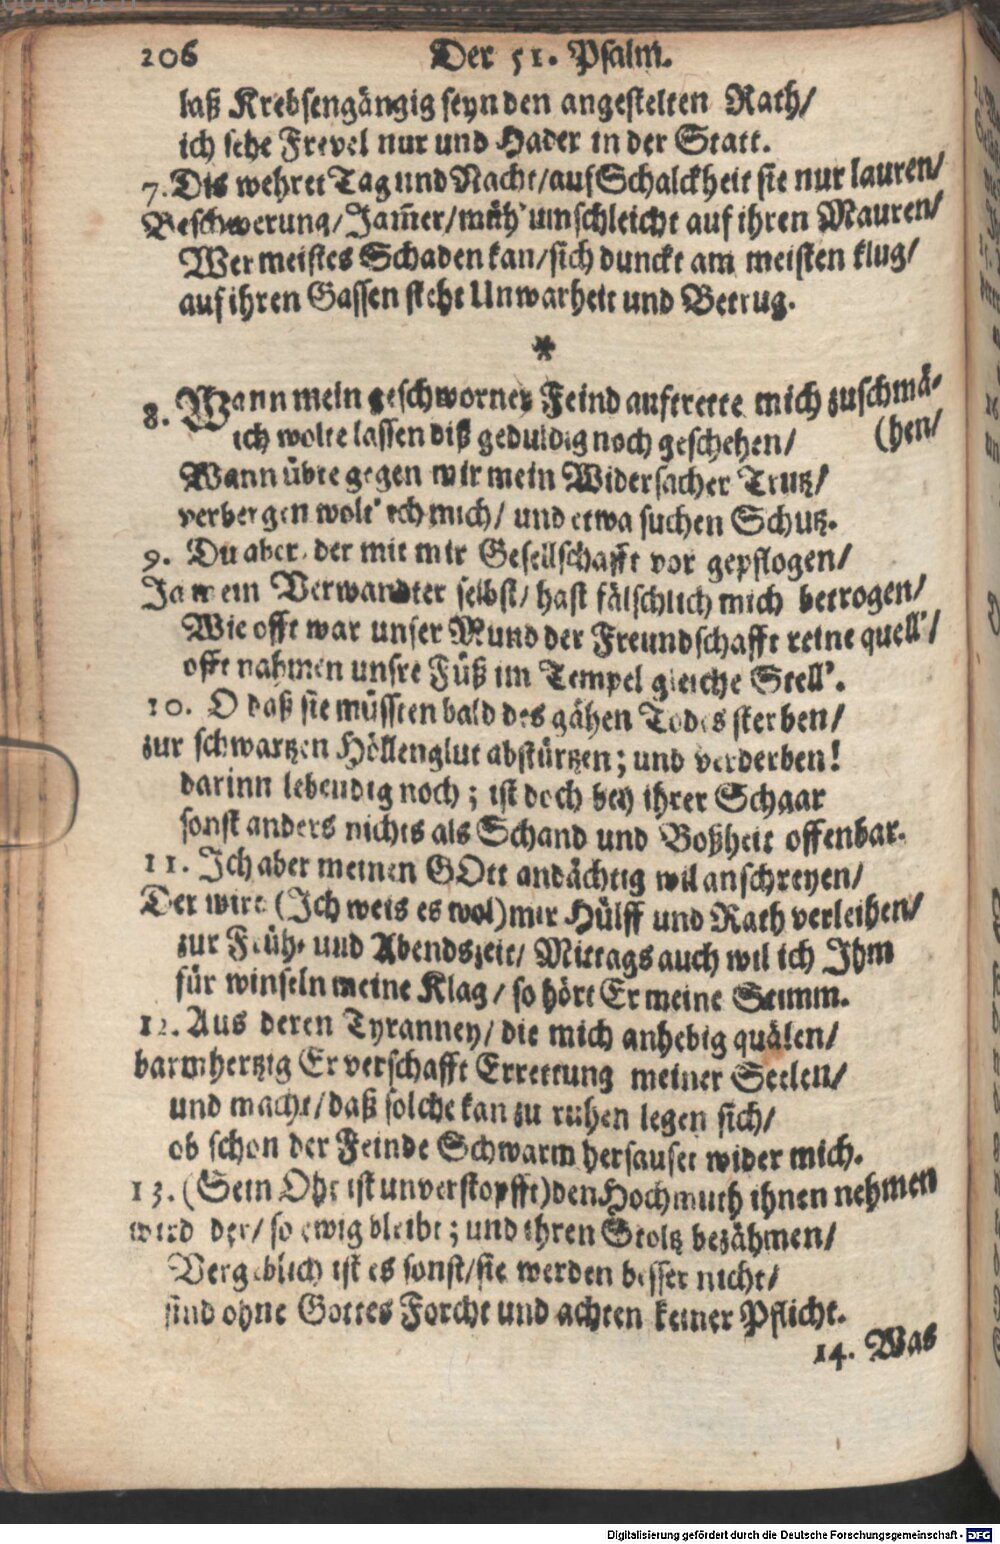 206 Der 51. Psalm.
laß Krebsengängig seyn den angestelten Rath/
ich sehe Frevel nur und Hader in der Statt.
7. Dis wehret Tag und Nacht/auf Schalckheit sie nur lauren/
Beschwerung/Jam̃er/müh' umschleicht auf ihren Mauren/
Wer meistes Schaden kan/sich dunckt am meisten klug/
auf ihren Gassen steht Unwarheit und Betrug.
*
8. Wann mein geschworner Feind auftrette mich zuschmä-
ich wolte lassen diß geduldig noch geschehen/ (hen/
Wann übte gegen mir mein Widersacher Trutz/
verbergen wolt' ich mich/ und etwa suchen Schutz.
9. Du aber, der mit mir Gesellschafft vor gepflogen/
Ja mein Verwandter selbst/ hast fälschlich mich betrogen/
Wie offt war unser Mund der Freundschafft reine quell'/
offt nahmen unsre Füß im Tempel gleiche Stell'.
10. O daß sie müssten bald des gähen Todes sterben/
zur schwartzen Höllenglut abstürtzen; und verderben!
darinn lebendig noch; ist doch bey ihrer Schaar
sonst anders nichts als Schand und Boßheit offenbar.
11. Ich aber meinen GOtt andächtig wil anschreyen/
Der wird (Ich weis es wol) mir Hülff und Rath verleihen/
zur Früh- und Abendszeit/ Mittags auch wil ich Ihm
für winseln meine Klag/ so hört Er meine Stimm.
12. Aus deren Tyranney/ die mich anhebig quälen/
barmhertzig Er verschafft Errettung meiner Seelen/
und macht/daß solche kan zu ruhen legen sich/
ob schon der Feinde Schwarm hersauset wider mich.
13. (Sein Ohr ist unverstopfft) den Hochmuth ihnen nehmen
wird der/ so ewig bleibt; und ihren Stoltz bezähmen/
Vergeblich ist es sonst/sie werden besser nicht/
sind ohne Gottes Forcht und achten keiner Pflicht.
14. Was
Digitalisierung gefördert durch die Deutsche Forschungsgemeinschaft - DFG